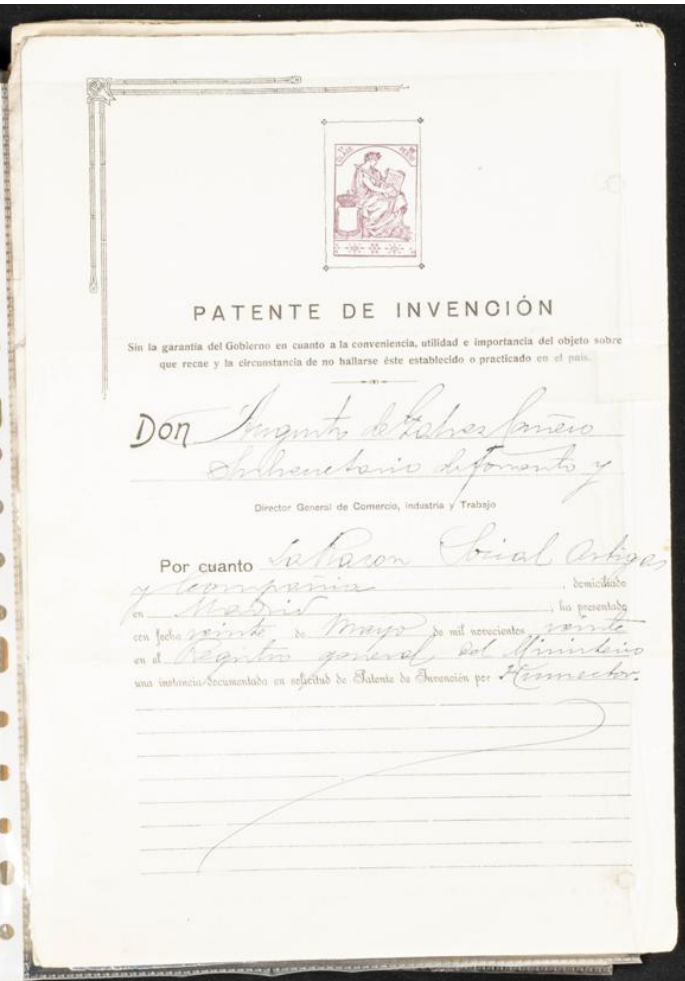 1ª CLASE
PATENTE DE INVENCIÓN
Sin la garantía del Gobierno en cuanto a la conveniencia, utilidad e importancia del objeto sobre
que recae y la circunstancia de no hallarse éste establecido o practicado en el país.
Don Augusto de
Subsecretario de Fomento y
Director General de Comercio, Industria y Trabajo
Por cuanto La Razon Social Artigas
y Compañia, domiciliado
en Madrid, ha presentado
con fecha veinte de Mayo de mil novecientos veinte
en el Registro general del Ministerio
una instancia documentada en solicitud de Patente de Invención por Humector.